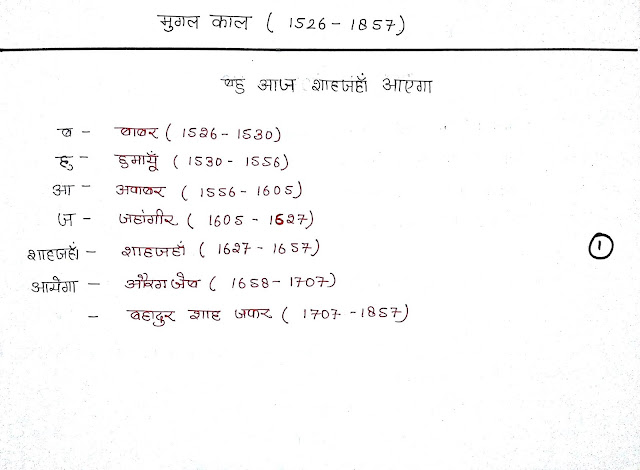 मुगल काल ( 1526 - 1857)
बहु आज शाहजहाँ आएगा
ब - बाबर ( 1526 - 1530)
हु - हुमायूँ ( 1530 - 1556)
आ - अकबर ( 1556 - 1605)
ज - जहांगीर ( 1605 - 1627)
शाहजहाँ - शाहजहाँ ( 1627 - 1657)
1
आयेगा - औरंगजेब ( 1658 - 1707)
- बहादुर शाह जफर ( 1707 - 1857)